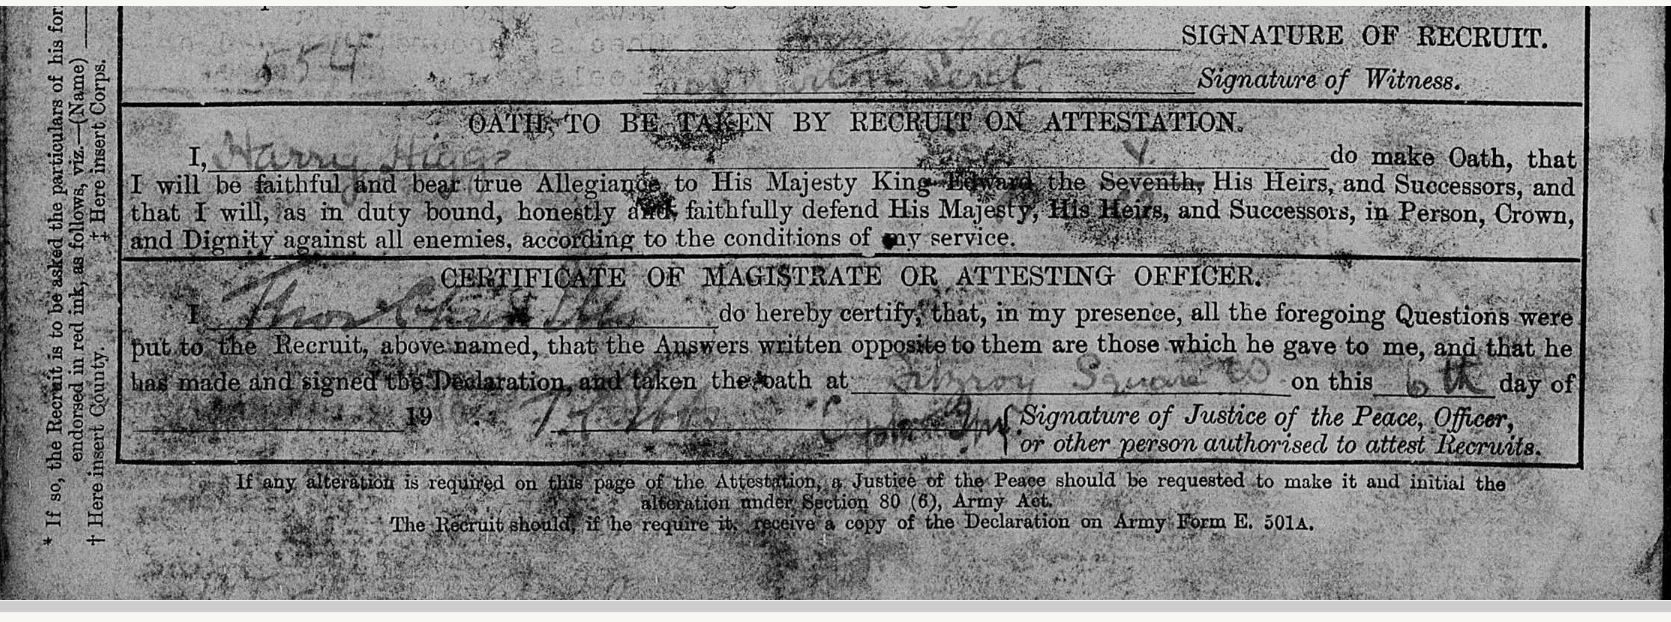 SIGNATURE OF RECRUIT.
554
Signature of Witness.
OATH TO BE TAKEN BY RECRUIT ON ATTESTATION.
I, Harry Higgs do make Oath, that
I will be faithful and bear true Allegiance to His Majesty King Edward the Seventh, His Heirs, and Successors, and
that I will, as in duty bound, honestly and faithfully defend His Majesty, His Heirs, and Successors, in Person, Crown,
and Dignity against all enemies, according to the conditions of my service.
CERTIFICATE OF MAGISTRATE OR ATTESTING OFFICER.
I do hereby certify, that, in my presence, all the foregoing Questions were
put to the Recruit, above named, that the Answers written opposite to them are those which he gave to me, and that he
has made and signed the Declaration, and taken the oath at Fitzroy Square on this 6th day of
19 Signature of Justice of the Peace, Officer,
or other person authorised to attest Recruits.
If any alteration is required on this page of the Attestation, a Justice of the Peace should be requested to make it and initial the
alteration under Section 80 (6), Army Act.
The Recruit should, if he require it, receive a copy of the Declaration on Army Form E. 501A.
* If so, the Recruit is to be asked the particulars of his for
endorsed in red ink, as follows, viz.—(Name)
† Here insert County. ‡ Here insert Corps.